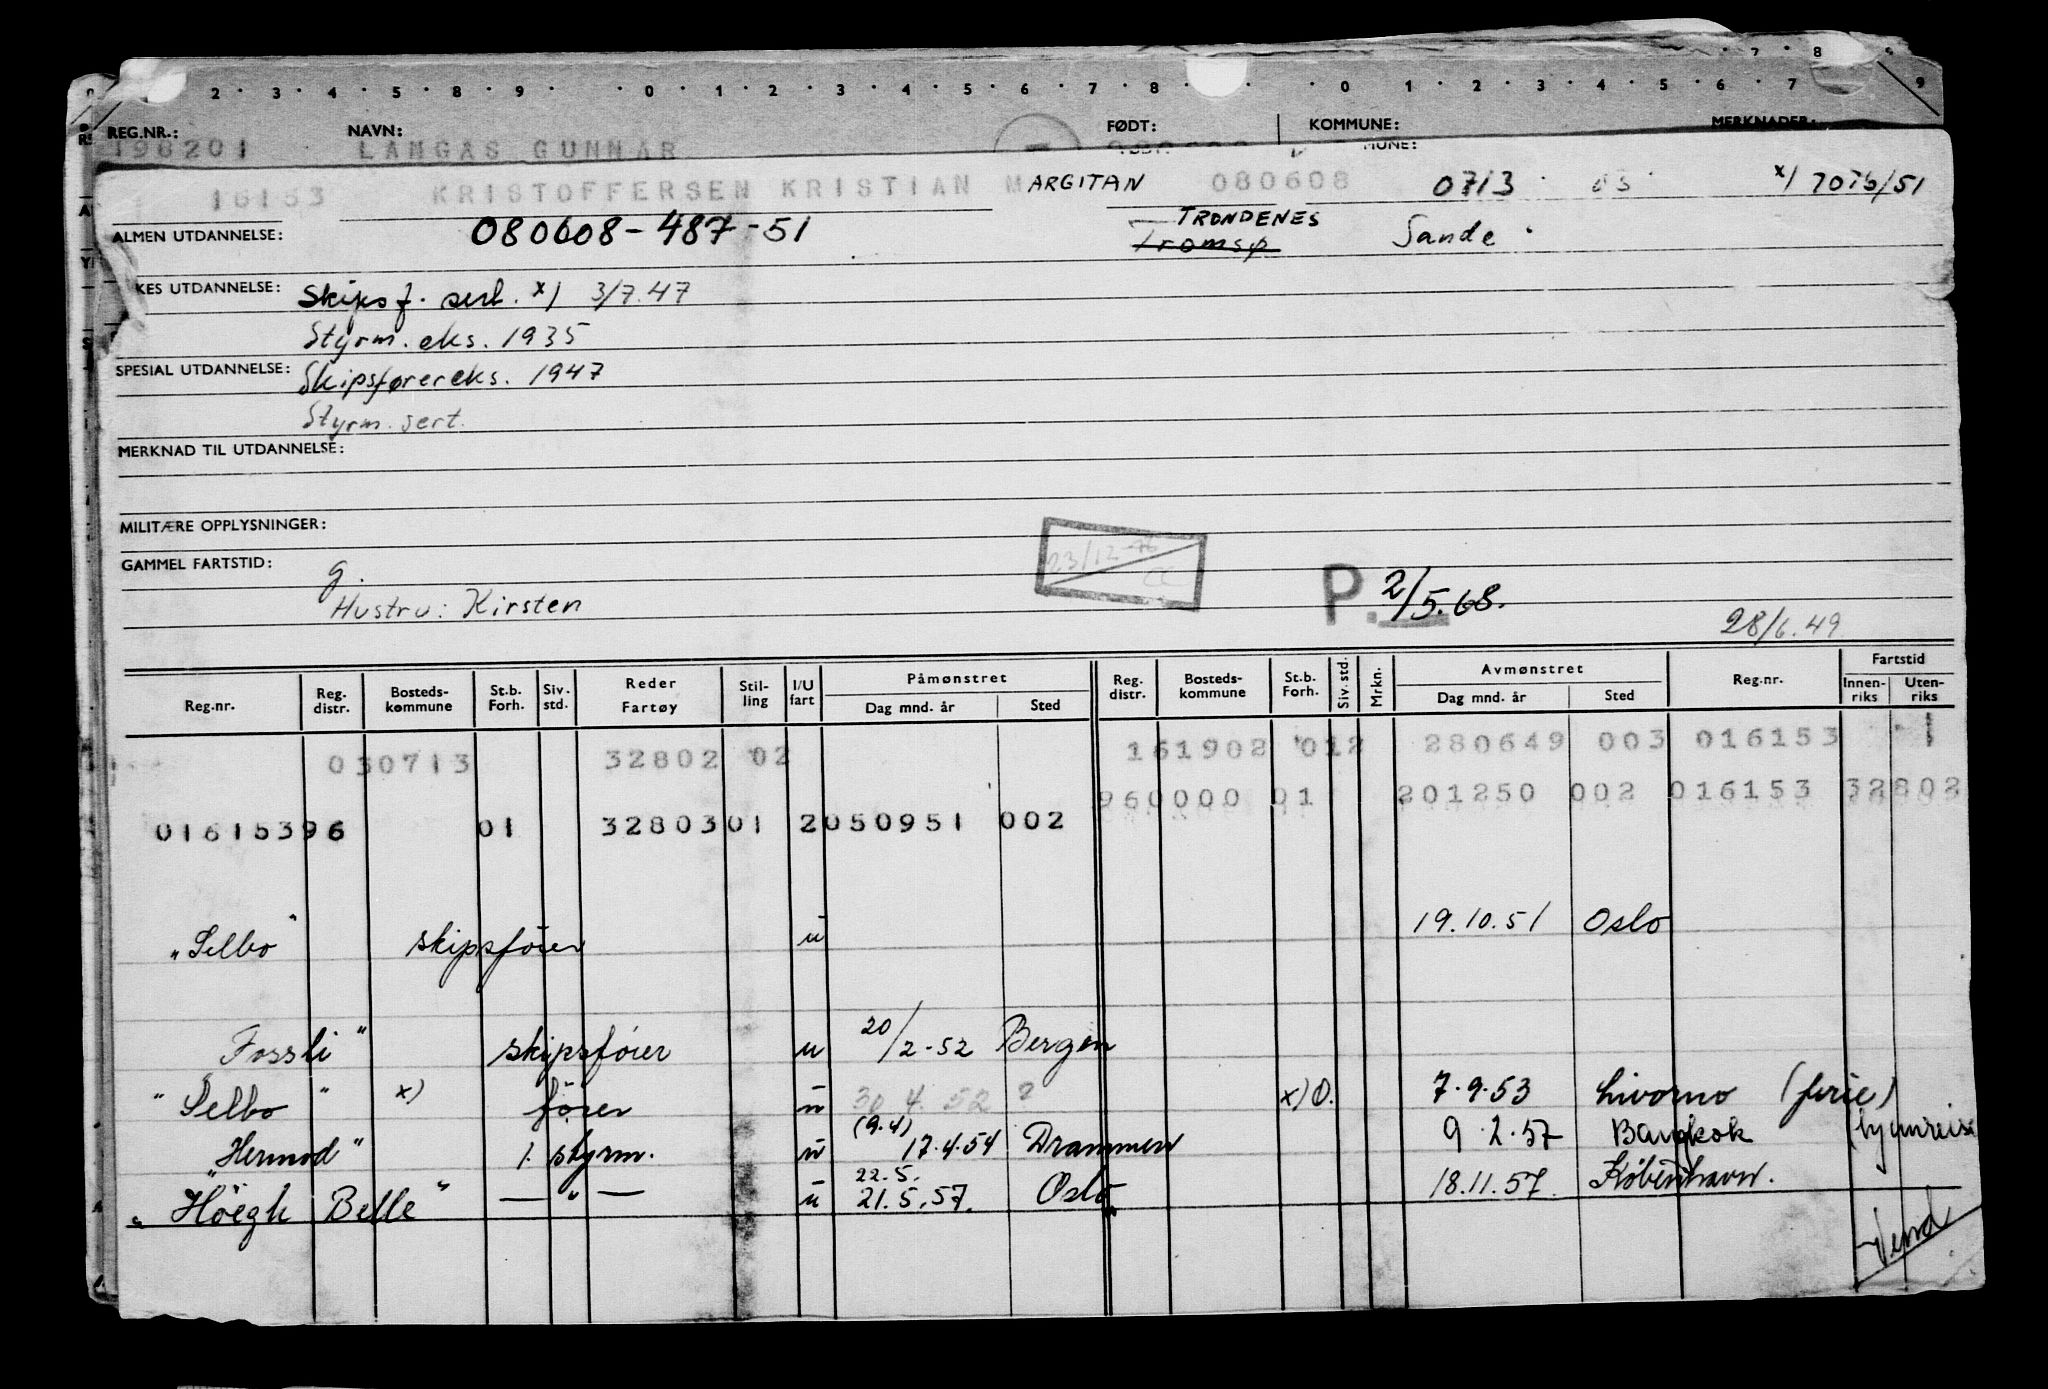 2 · 3 · 4 · 5 · 8 · 9 · · 0 · 1 · 2 · 3 · 4 · 5 · 6 · 7 · 8 · · 0 · 1 · 2 · 3 · 4 · 5 · 6 · 7 · 8 9
REG.NR.: NAVN: FØDT: KOMMUNE: MERKNADER:
196201 LANGAS GUNNAR
16153 KRISTOFFERSEN KRISTIAN MARGITAN 080608 0713 03 x) 7076/51
ALMEN UTDANNELSE: 080608-487-51 TRONDENES
Tromsø Sande
KES UTDANNELSE: Skipsf. sert. x) 3/7.47
Styrm. eks. 1935
SPESIAL UTDANNELSE: Skipsførereks. 1947
Styrm. sert.
MERKNAD TIL UTDANNELSE:
MILITÆRE OPPLYSNINGER:
GAMMEL FARTSTID: g.
Hustru: Kirsten P. 2/5.68. 28/6.49
Reg.nr. Reg. distr. Bosteds-kommune St.b. Forh. Siv. std. Reder Fartøy Stil-ling I/U fart Påmønstret Dag mnd. år Sted Reg. distr. Bosteds-kommune St.b. Forh. Siv. std. Mrkn. Avmønstret Dag mnd. år Sted Reg.nr. Fartstid Innen-riks Uten-riks
030713 32802 02 161902 012 280649 003 016153 1
960000 01 201250 002 016153 32802
01615396 01 3280301 2050951 002
"Selbo" skipsfører u 19.10.51 Oslo
Fossli" skipsfører u 20/2-52 Bergen
"Selbo" x) fører u 30 4. 52 ? x) O. 7.9.53 Livorno (ferie)
"Hermod" 1. styrm. u (9.4) 17.4.54 Drammen 9.2.57 Bangkok (hjemreise
"Höegh Belle" — " — u 22.5. 21.5.57. Oslo 18.11.57. København.
Vend